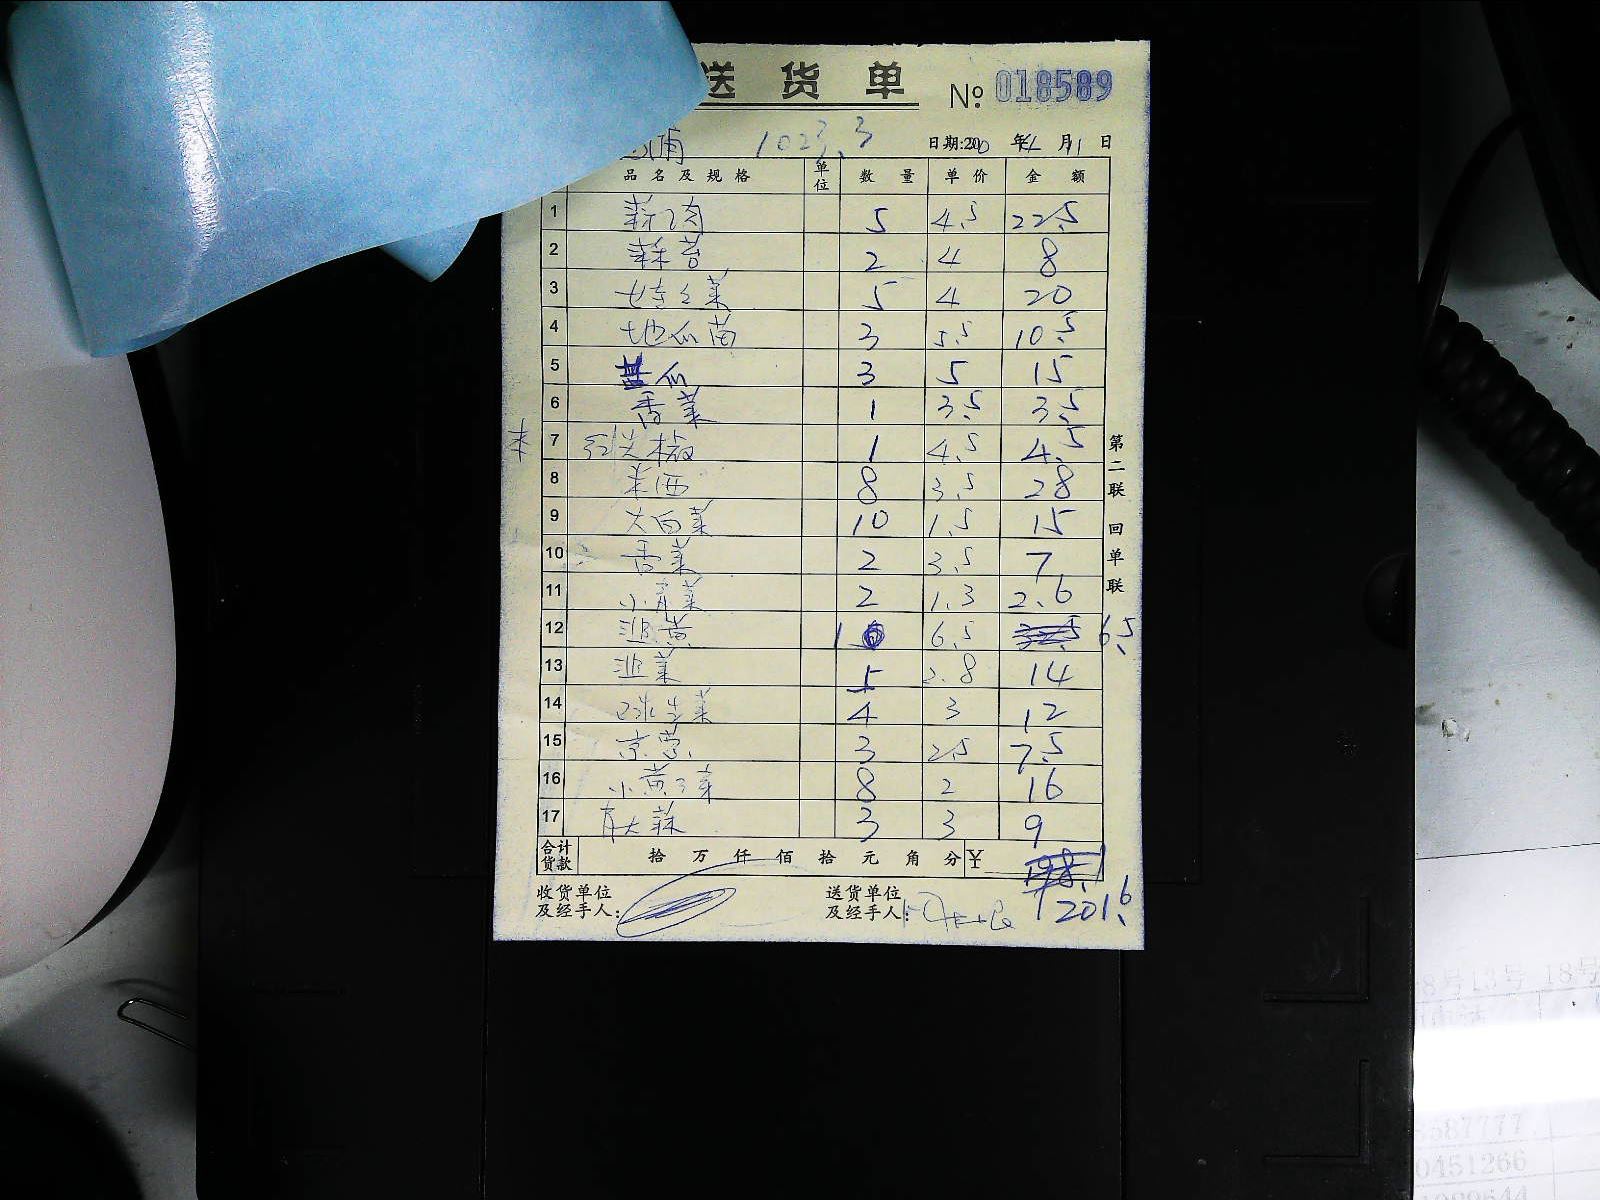 送 货 单 № 018589
1023.3 日期:20 年 月11日
品名及规格 单位 数量 单价 金额
1 蒜肉 5 4.5 22.5
2 蒜苔 2 4 8
3 5 4 20
4 地瓜苗 3 5.5 10.5
5 瓜 3 5 15
6 香菜 1 3.5 3.5
7 1 4.5 4.5
8 8 3.5 28
9 大白菜 10 1.5 15
10 香菜 2 3.5 7
11 小青菜 2 1.3 2.6
12 韭黄 1 6.5 6.5
13 韭菜 5 2.8 14
14 球生菜 4 3 12
15 京葱 3 2.5 7.5
16 小黄 8 2 16
17 青大蒜 3 3 9
合计货款 拾 万 仟 佰 拾 元 角 分 ¥
201.6
收货单位及经手人:
送货单位及经手人:
第二联 回单联
8号13号 18号
587777
0451266